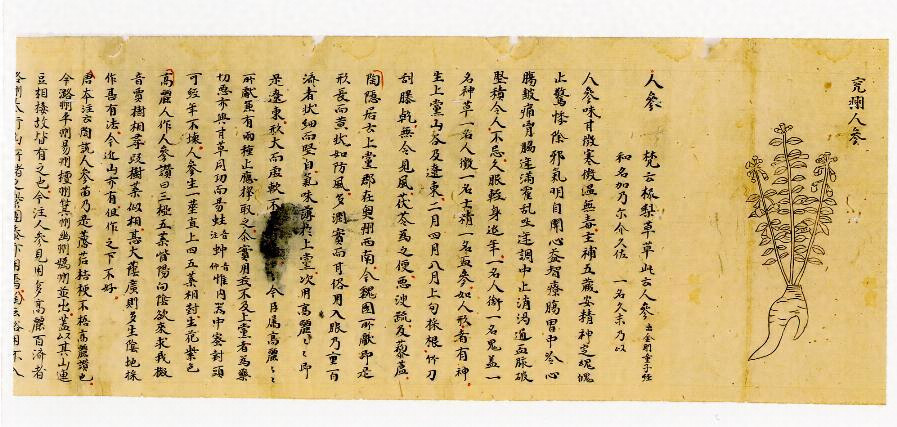 人參　梵云柀梨草草此云人參　出金剛童子経
和名加乃尓介久佐　一名久末乃以
人參味甘微寒微温無毒主補五藏安精神定魂魄
止驚悸除邪氣明目開心益智療腸胃中冷心
腸皷痛胷脇逆滿霍乱吐逆調中止消渇通血脈破
堅積令人不忘久服軽身延年一名人銜一名鬼盖一
名神草一名人微一名土精一名血參如人形者有神
生上黨山谷及遼東二月四月八月上旬採根竹刀
刮曝乾無令見風茯苓為之使悪溲疏反藜蘆
陶隱居云上黨郡在兾州西南今魏國所獻即是
形長而黄状如防風多潤實而甘俗用入服乃重百
濟者状細而堅白氣味薄於上黨次用高麗々々即
是遼東形大而虚軟不　今臣属高麗々々
所獻兼有兩種止應擇取之尓實用並不及上黨者為藥
切要亦與甘草同功而易蛀注蚛音仲惟内器中密封頭
可経年不壊人參生一莖直上四五葉相對生花紫色
高麗人作人參讃曰三椏五葉背陽向陰欲來求我椵
音賈樹相尋椵樹葉似桐甚大陰廣則多生陰地採
作甚有法今近山亦有但作之下不好
唐本注云陶説人參苗乃是薺苨桔梗不悟高麗讃也
今潞州平州易州檀州箕州幽州嬀州並出盖以其山連
亘相接故皆有之也今注人參見用多高麗百濟者